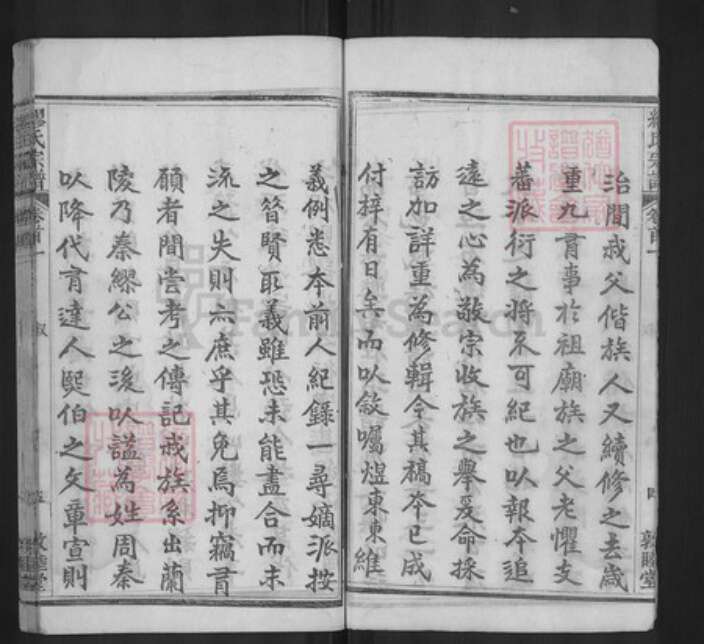 繆氏宗譜 卷首一 敦睦堂
治間戎父偕族人又續修之去歲
重九有事於祖廟族之父老懼支
蕃派衍之將不可紀也以報本追
遠之心為敬宗收族之舉爰命採
訪加詳重為修輯今其稿本已成
付梓有日矣而以敘囑煜東東維
義例悉本前人紀錄一尋嫡派按
之昝賢取義雖恐未能盡合而末
流之失則六庶乎其免焉抑竊有
願者間嘗考之傳記戎族系出蘭
陵乃秦繆公之後以謚為姓周秦
以降代有達人熙伯之文章宣則
繆氏宗譜 卷首一 敘 五 敦睦堂
FamilySearch